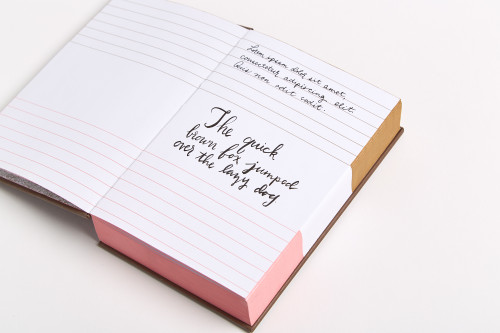 Lorem ipsum dold sit amet,
consectetur adipiscing elit.
Duis non odit codit.
The quick
brown fox jumped
over the lazy dog